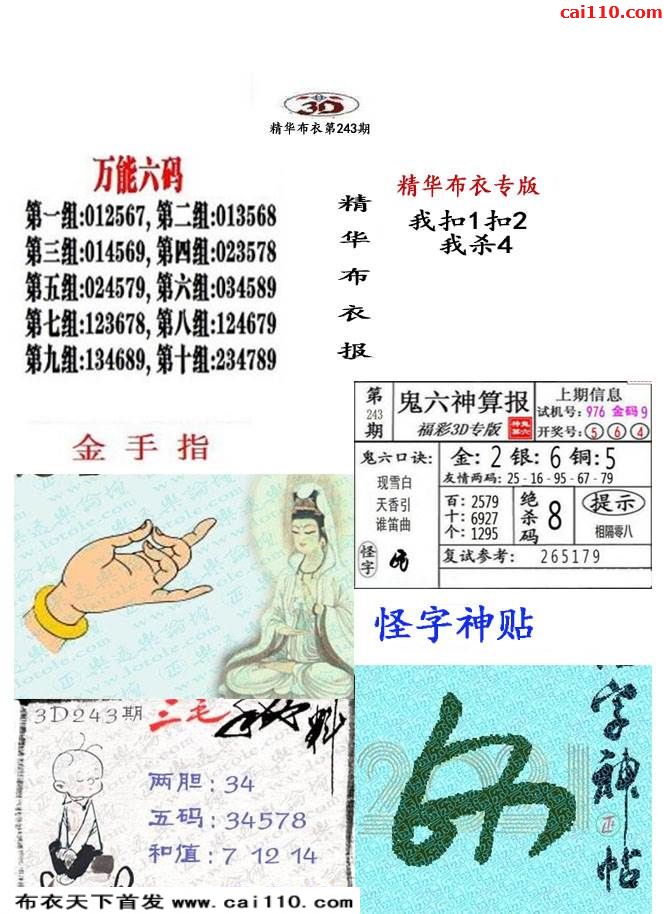 cai110.com
3D
精华布衣第243期
万能六码
第一组:012567, 第二组:013568
第三组:014569, 第四组:023578
第五组:024579, 第六组:034589
第七组:123678, 第八组:124679
第九组:134689, 第十组:234789
精华布衣报
精华布衣专版
我扣1扣2
我杀4
金手指
第243期
鬼六神算报
福彩3D专版
上期信息
试机号: 976 金码9
开奖号: 5 6 4
鬼六口诀:
现雪白
天香引
谁笛曲
怪字
金: 2 银: 6 铜: 5
友情两码: 25-16-95-67-79
百: 2579
十: 6927
个: 1295
绝杀码
8
提示
相隔零八
复试参考: 265179
怪字神贴
3D243期
三毛
两胆: 34
五码: 34578
和值: 7 12 14
怪字神帖
布衣天下首发 www.cai110.com